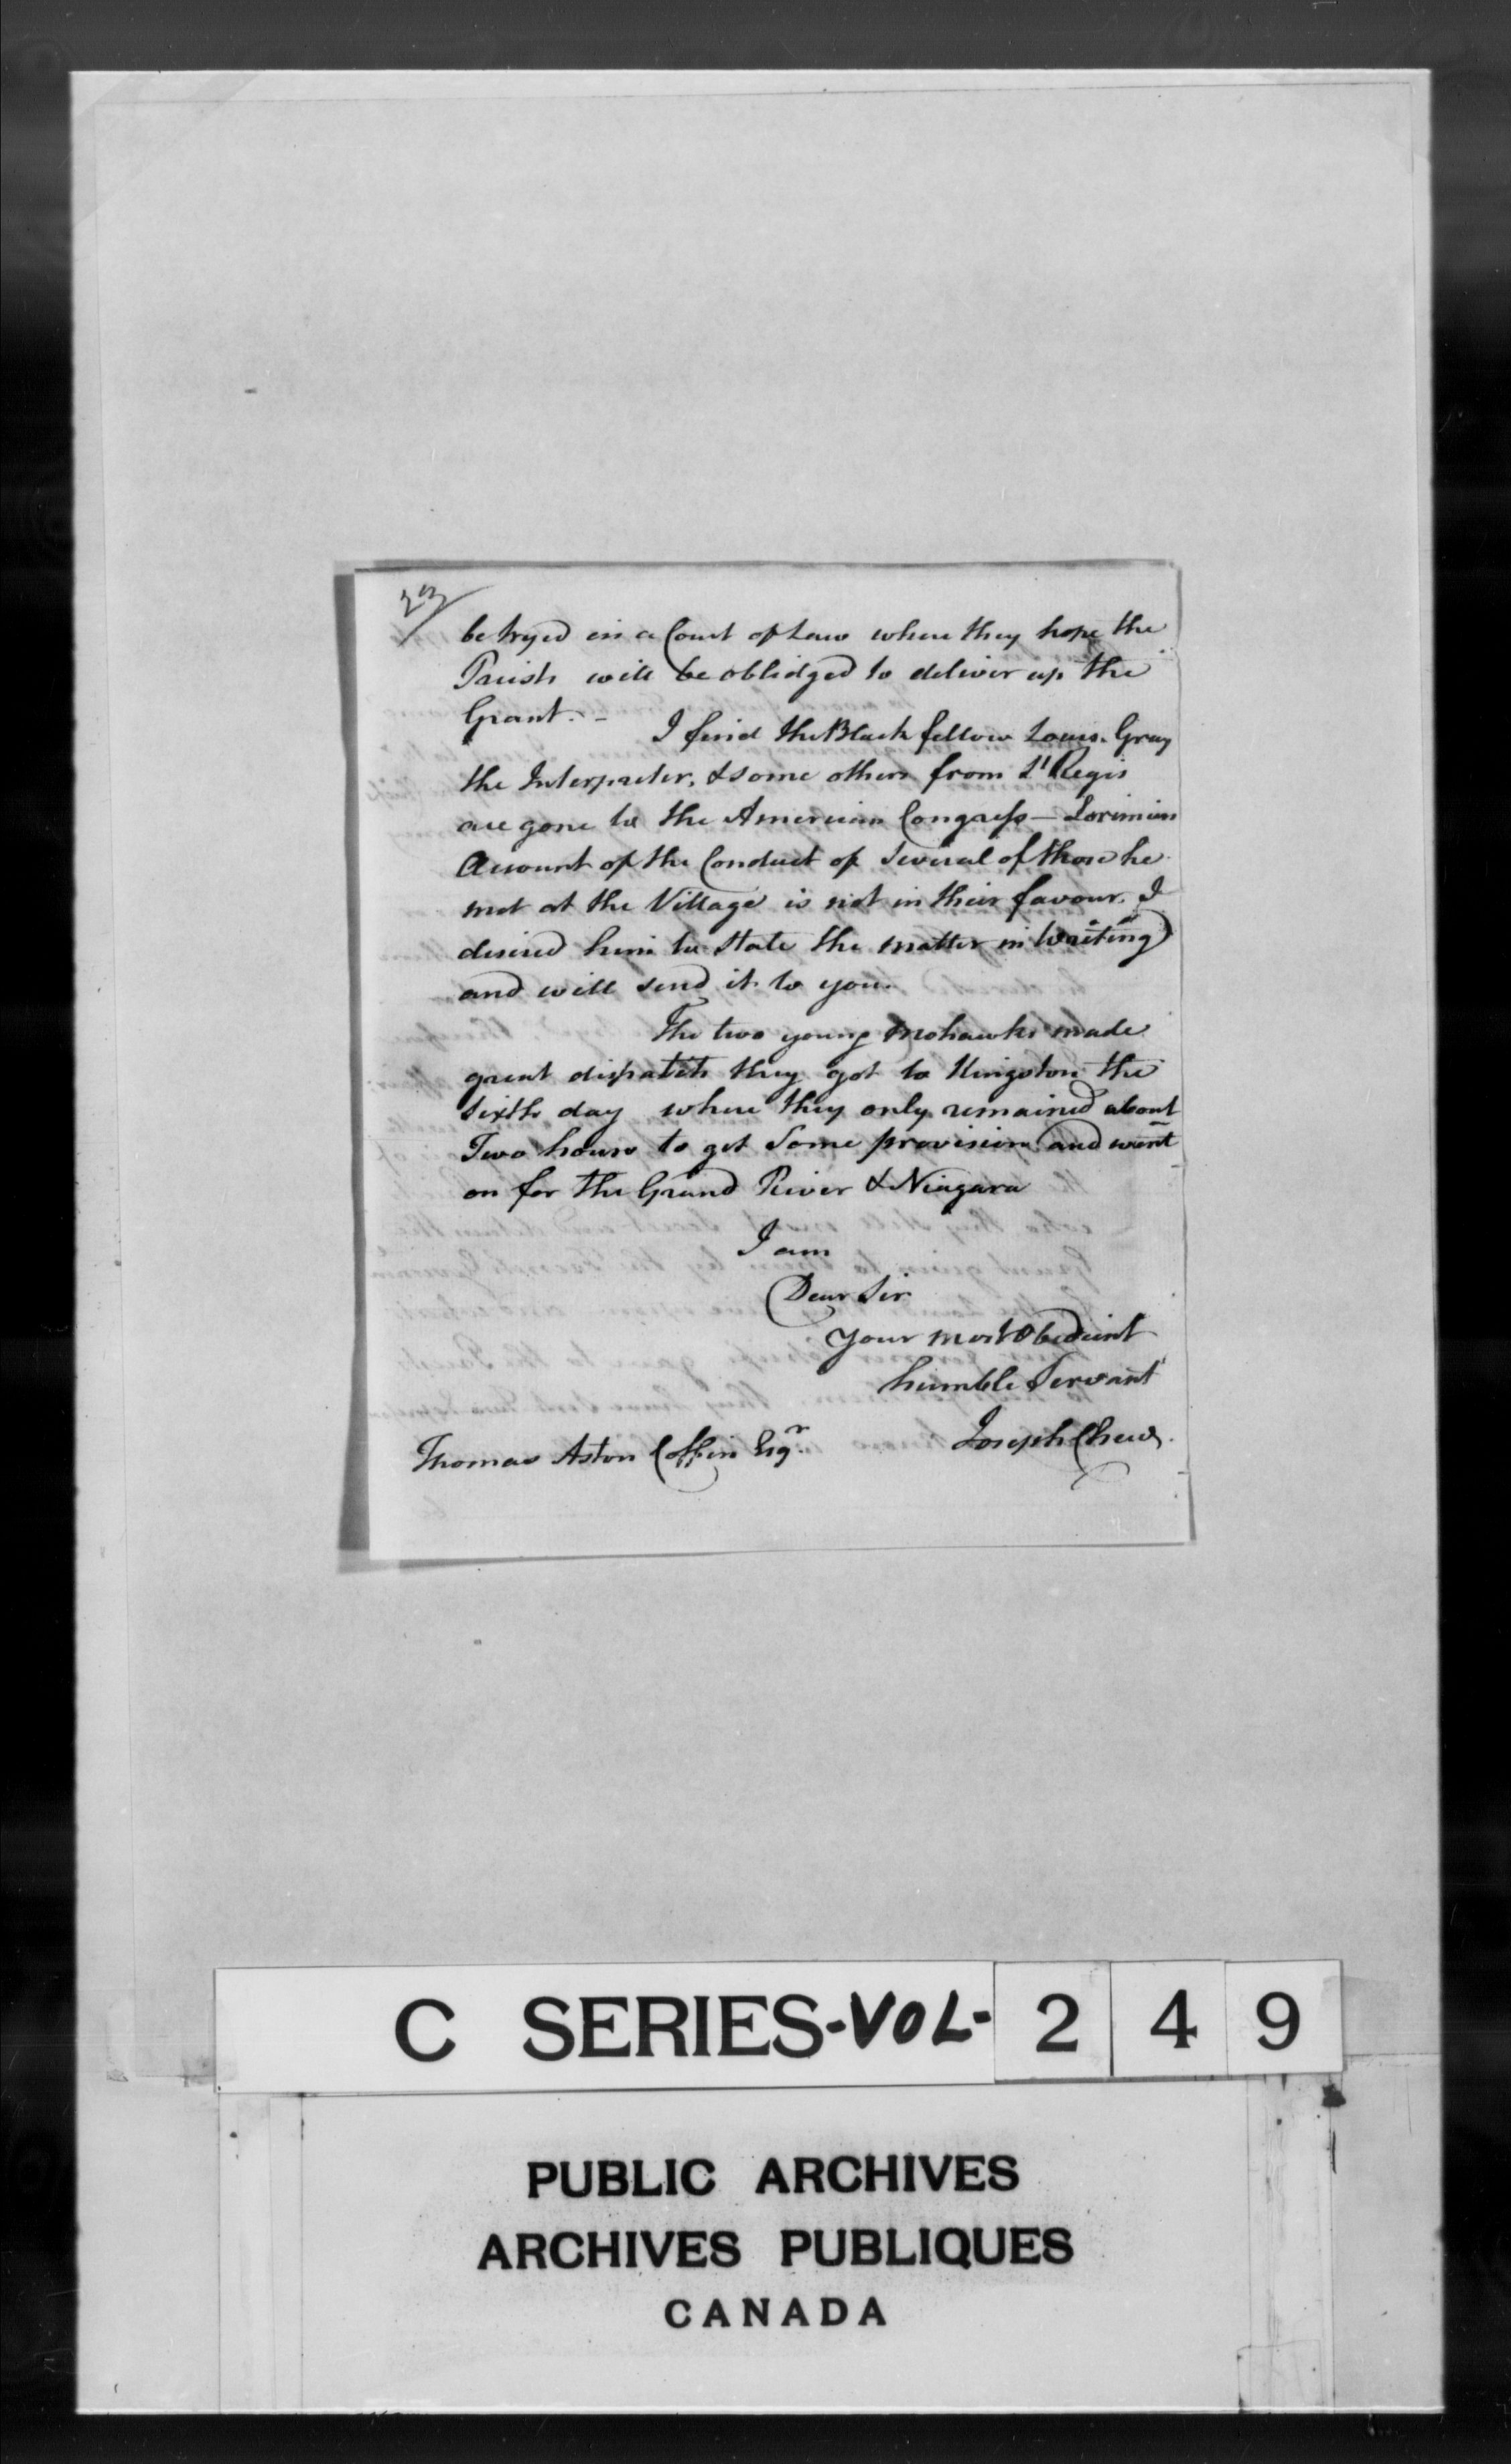 23
be tryed in a Court of Law where they hope the
Priest will be oblidged to deliver up the
Grant. - I find the Black fellow Louis, Gray
the Interpreter, & some others from St Regis
are gone to the American Congress — Lorimiers
Account of the Conduct of several of those he
met at the Village is not in their favour. I
desired him to state the matter in Writing
and will send it to you.
The two young Mohawks made
great dispatch they got to Kingston the
sixth day where they only remained about
Two hours to get Some provision and went
on for the Grand River & Niagara
I am
Dear Sir
your most Obedient
humble Servant
Joseph Chew.
Thomas Aston Coffin Esqr.
C SERIES-VOL-249
PUBLIC ARCHIVES
ARCHIVES PUBLIQUES
CANADA